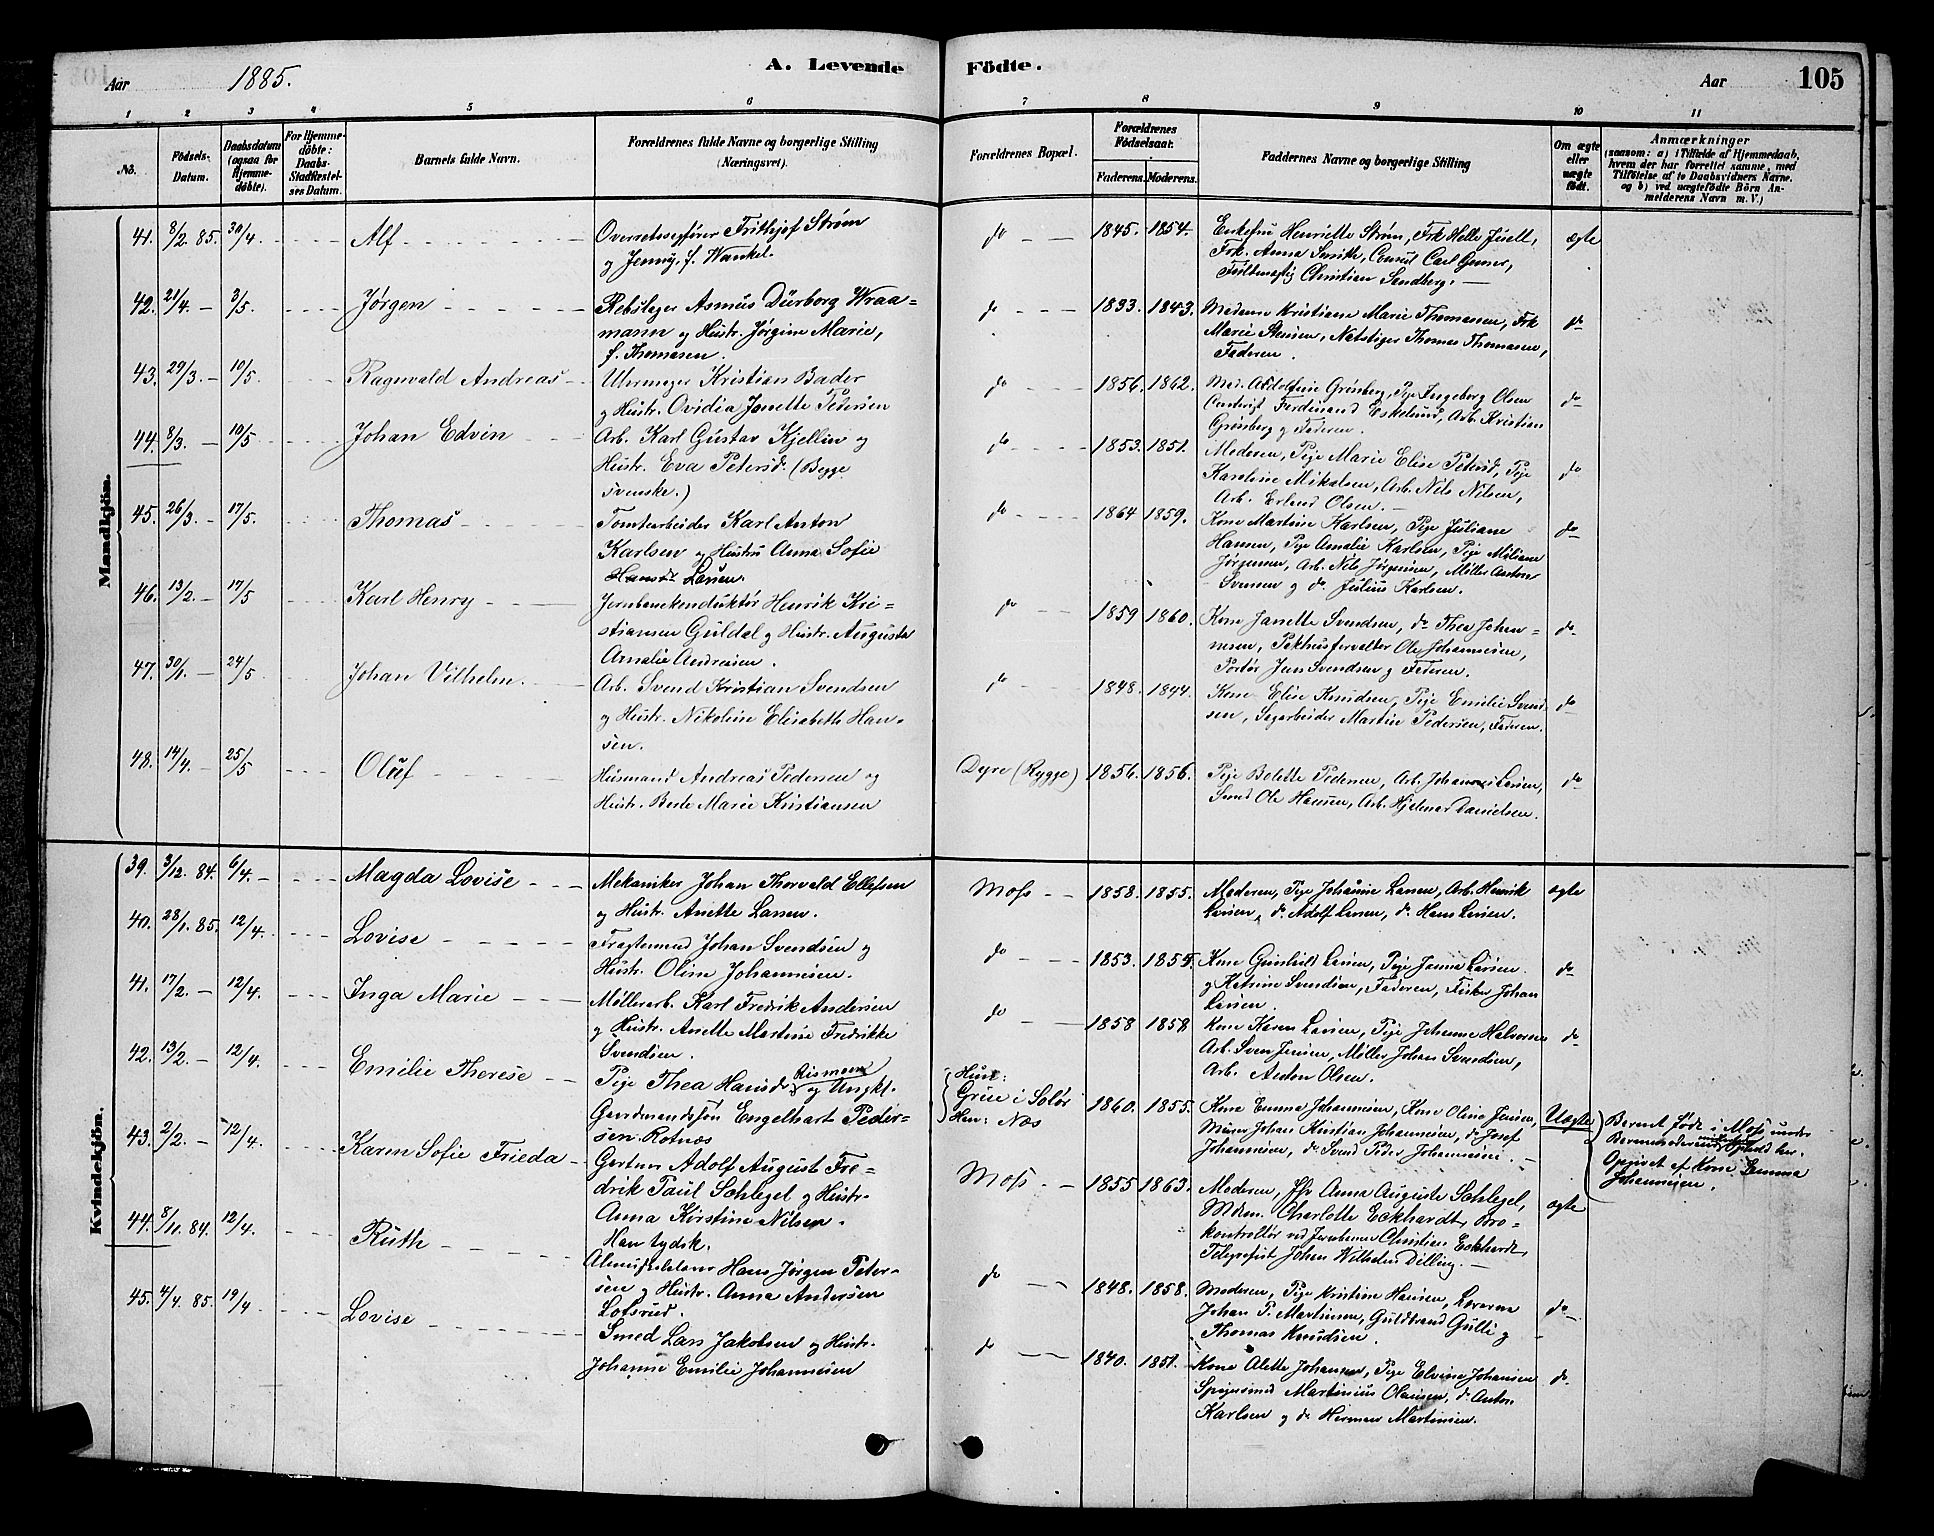 Aar 1885. A. Levende Födte. Aar 105
1 2 3 4 5 6 7 8 9 10 11
No.
Födsels-
Datum.
Daabsdatum
(ogsaa for
Hjemme-
döbte).
For Hjemme-
döbte:
Daabs-
Stadfæstel-
ses Datum.
Barnets fulde Navn.
Forældrenes fulde Navne og borgerlige Stilling
(Næringsvei).
Forældrenes Bopæl.
Forældrenes
Födselsaar.
Faderens. Moderens.
Faddernes Navne og borgerlige Stilling
Om ægte
eller
uægte
födt.
Anmærkninger
(saasom: a) i Tilfælde af Hjemmedaab,
hvem der har forrettet samme, med
Tilföielse af to Daabsvidners Navne,
og b) ved uægtefödte Börn An-
melderens Navn m. V.)
Mandkjön.
41. 8/2 85. 30/4 Alf
Overretssagfører Frithjof Strøm
og Jenny, f. Wankel.
do 1845. 1854.
Enkefru Henriette Strøm, Frk Helle Juell,
Frk. Anna Smith, Consul Carl Gerner,
Fuldmægtig Christian Sandberg.
ægte
42. 21/4 3/5. Jørgen
Rebslager Asmus Dürborg Wraa-
mann og Hustr. Jørgine Marie,
f. Thomesen.
do 1833. 1843.
Madame Kristiane Marie Thomasen, Frk
Marie Stensen, Thomas Thomasen,
Faderen.
do
43. 29/3. 10/5. Ragnvald Andreas
Uhrmager Kristian Bader
og Hustr. Ovidia Janette Petersen
do 1856. 1862.
Mad. Adolfine Grønberg, Pige Ingeborg Olsen
Ferdinand Eskelund, Arb. Kristian
Grønberg og Faderen.
do
44. 8/3. 10/5 Johan Edvin
Arb. Karl Gustav Kjellin og
Hustr. Eva Petersd. (Begge
svenske.)
do 1853. 1851.
Moderen, Pige Marie Elise Petersd, Pige
Karoline Mikalsen, Arb. Nils Nilsen,
Arb. Erland Olsen.
do
45. 26/3. 17/5. Thomas
Tomtearbeider Karl Anton
Karlsen og Hustru Anna Sofie
Larsen.
do 1864 1859.
Kone Martine Karlsen, Pige Juliane
Hansen, Pige Amalie Karlsen, Pige Miliane
Jørgensen, Arb. Nils Jørgensen, Møller Anton
Svensen og do Julius Karlsen.
do
46. 13/2. 17/5 Karl Henry
Jernbanekonduktør Henrik Kri-
stiansen Guldal og Hustr. Augusta
Amalie Andreasen.
do 1859 1860.
Kone Janette Svendsen, do Thea Johan-
nesen, Pakhusforvalter Ole Johannesen,
Portør Jens Svendsen og Faderen.
do
47. 30/1. 24/5 Johan Vilhelm.
Arb. Svend Kristian Svendsen
og Hustr. Nikoline Elisabeth Han-
sen.
do 1848. 1844.
Kone Elise Knudsen, Pige Emilie Svend-
sen, Sagarbeider Martin Pedersen, Faderen.
do
48. 14/4. 25/5 Oluf
Husmand Andreas Pedersen og
Hustr. Berte Marie Kristiansen
Dyre (Rygge) 1856. 1856.
Pige Bolette Pedersen, Arb. Johannes Larsen,
Smed Ole Hansen, Arb. Hjelmar Danielsen.
do
Kvindekjön.
39. 3/12. 84. 6/4. Magda Lovise
Mekaniker Johan Thorvald Ellefsen
og Hustr. Anette Larsen.
Moss 1858. 1855.
Moderen, Pige Johanne Larsen, Arb. Henrik
Larsen, do Adolf Larsen, do Hans Larsen.
ægte
40. 28/1. 85. 12/4. Lovise
Fragtemand Johan Svendsen og
Hustr. Oline Johannesen.
do 1853. 1855.
Kone Gunhild Larsen, Pige Janna Larsen
og Katrine Svendsen, Faderen, Fisker Johan
Larsen.
do
41. 17/2. 12/4. Inga Marie
Møllerarb. Karl Fredrik Andersen
og Hustr. Anette Martine Fredrikke
Svendsen.
do 1858 1858
Kone Karen Larsen, Pige Johanne Halvorsen
Arb. Sven Jensen, Møller Johan Svendsen,
Arb. Anton Olsen.
do
42. 13/2. 12/4. Emilie Therese
Pige Thea Hansd. Rismoen og Ungkl.
Gaardmandssøn Engelhart Peder-
sen Rotnæs
Hun:
Grue i Solør
Han: Næs
1860. 1855.
Kone Emma Johannesen, Kone Olina Jensen,
Murer Johan Kristian Johannesen, do Josef
Johannesen, do Svend Peder Johannesen.
Uægte
Barnet født i Moss under
Barnemoderens Ophold her.
Opgivet af Kone Emma
Johannesen.
43. 2/2. 12/4. Karen Sofie Frieda
Gartner Adolf August Fre-
drik Paul Schlegel og Hustr.
Anna Kirstine Nilsen.
Han tydsk.
Moss 1855 1863.
Moderen, Anna Auguste Schlegel,
Mdm. Charlotte Eckhardt, Bro-
kontrollør ved Jernbanen Christian Eckhardt,
Telegrafist Johan Wilhelm Dilling.
ægte
44. 8/11. 84. 12/4. Ruth
Almueskolelærer Hans Jørgen Peter-
sen og Hustr. Anna Andersen
Lotsrud.
do 1848. 1858.
Moderen, Pige Kristine Hansen, Lærerne
Johan P. Martinsen, Guldbrand Gulli og
Thomas Knudsen.
do
45. 4/4. 85. 19/4 Lovise
Smed Lars Jakobsen og Hustr.
Johanne Emilie Johannesen
do 1840. 1851.
Kone Alette Johansen, Pige Elvine Johansen
Martinius Olausen, do Anton
Karlsen og do Herman Martinsen.
do